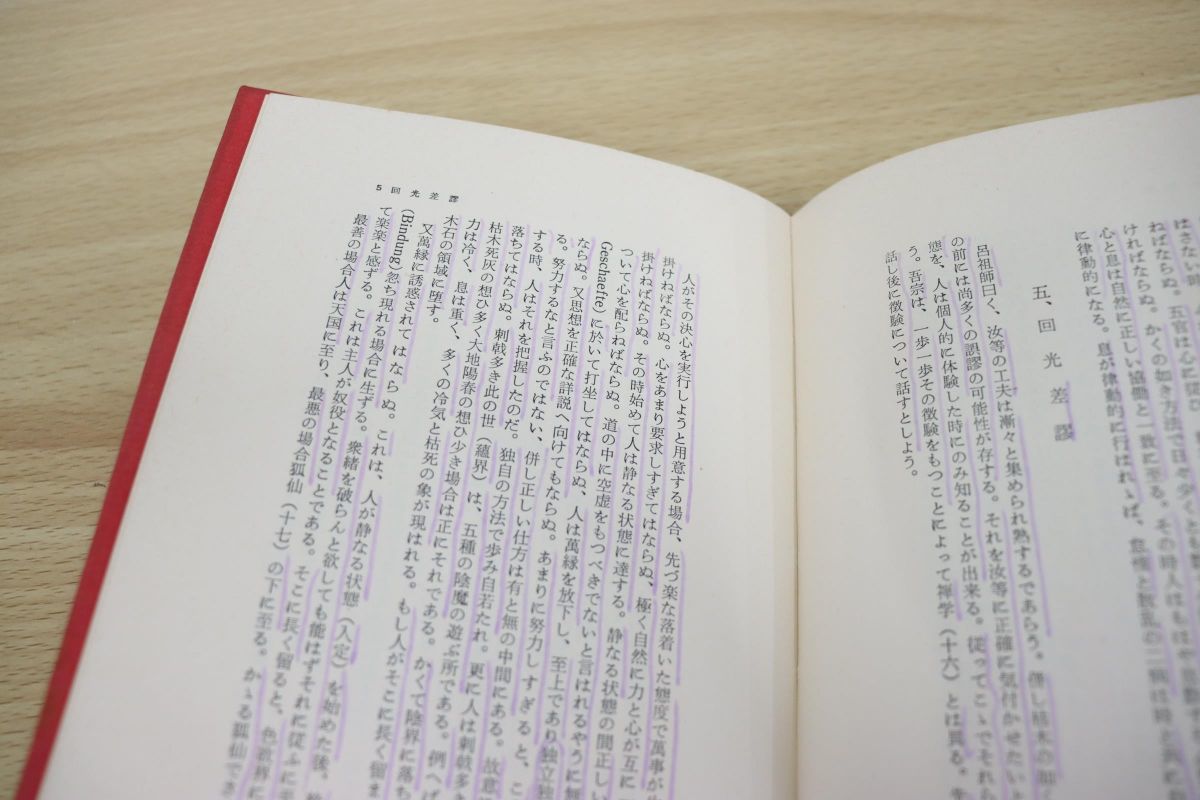 はさない
ねばならぬ。五官は心に
ければならぬ。かくの如き方法で日々少くと
心と息は自然に正しい協働と一致に至る。その時人はもはや
に律動的になる。息が律動的に行はれゝば、怠惰と散乱の二
五、回光差謬
呂祖師曰く、汝等の工夫は漸々と集められ熟するであらう。併し
の前には尚多くの誤謬の可能性が存する。それを汝等に正確に気付かせたいと
態を、人は個人的に体験した時にのみ知ることが出来る。従ってこゝでそれら
う。吾宗は、一歩一歩その徴験をもつことによって禅学（十六）とは異る。先
話し後に徴験について話すとしよう。
5 回光差謬
人がその決心を実行しようと用意する場合、先づ楽な落着いた態度で萬事が
掛けねばならぬ。心をあまり要求しすぎてはならぬ、極く自然に力と心が互に
掛けねばならぬ。その時始めて人は静なる状態に達する。静なる状態の間正しい
ついて心を配らねばならぬ。道の中に空虚をもつべきでないと言はれるやうに無
Geschaefte)に於いて打坐してはならぬ、人は萬縁を放下し、至上であり独立独
ならぬ。又思想を正確な詳説へ向けてもならぬ。あまりに努力しすぎると、こ
る。努力するなと言ふのではない、併し正しい仕方は有と無の中間にある。故意
する時、人はそれを把握したのだ。独自の方法で歩み自若たれ。更に人は刺戟多き
落ちてはならぬ。刺戟多き此の世（蘊界）は、五種の陰魔の遊ぶ所である。例へば
枯木死灰の想ひ多く大地陽春の想ひ少き場合は正にそれである。かくて陰界に落ち
力は冷く、息は重く、多くの冷気と枯死の象が現はれる。もし人がそこに長く留
木石の領域に堕す。
又萬縁に誘惑されてはならぬ。これは、人が静なる状態（入定）を始めた後、
(Bindung)忽ち現れる場合に生ずる。衆緒を破らんと欲しても能はずそれに従ふに
て楽楽と感ずる。これは主人が奴役となることである。そこに長く留ると、色欲界に
最善の場合人は天国に至り、最悪の場合狐仙（十七）の下に至る。かゝる狐仙でさ